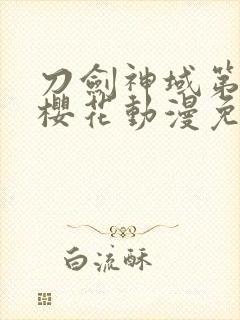 刀劍神域第
櫻花動漫免
白流酥